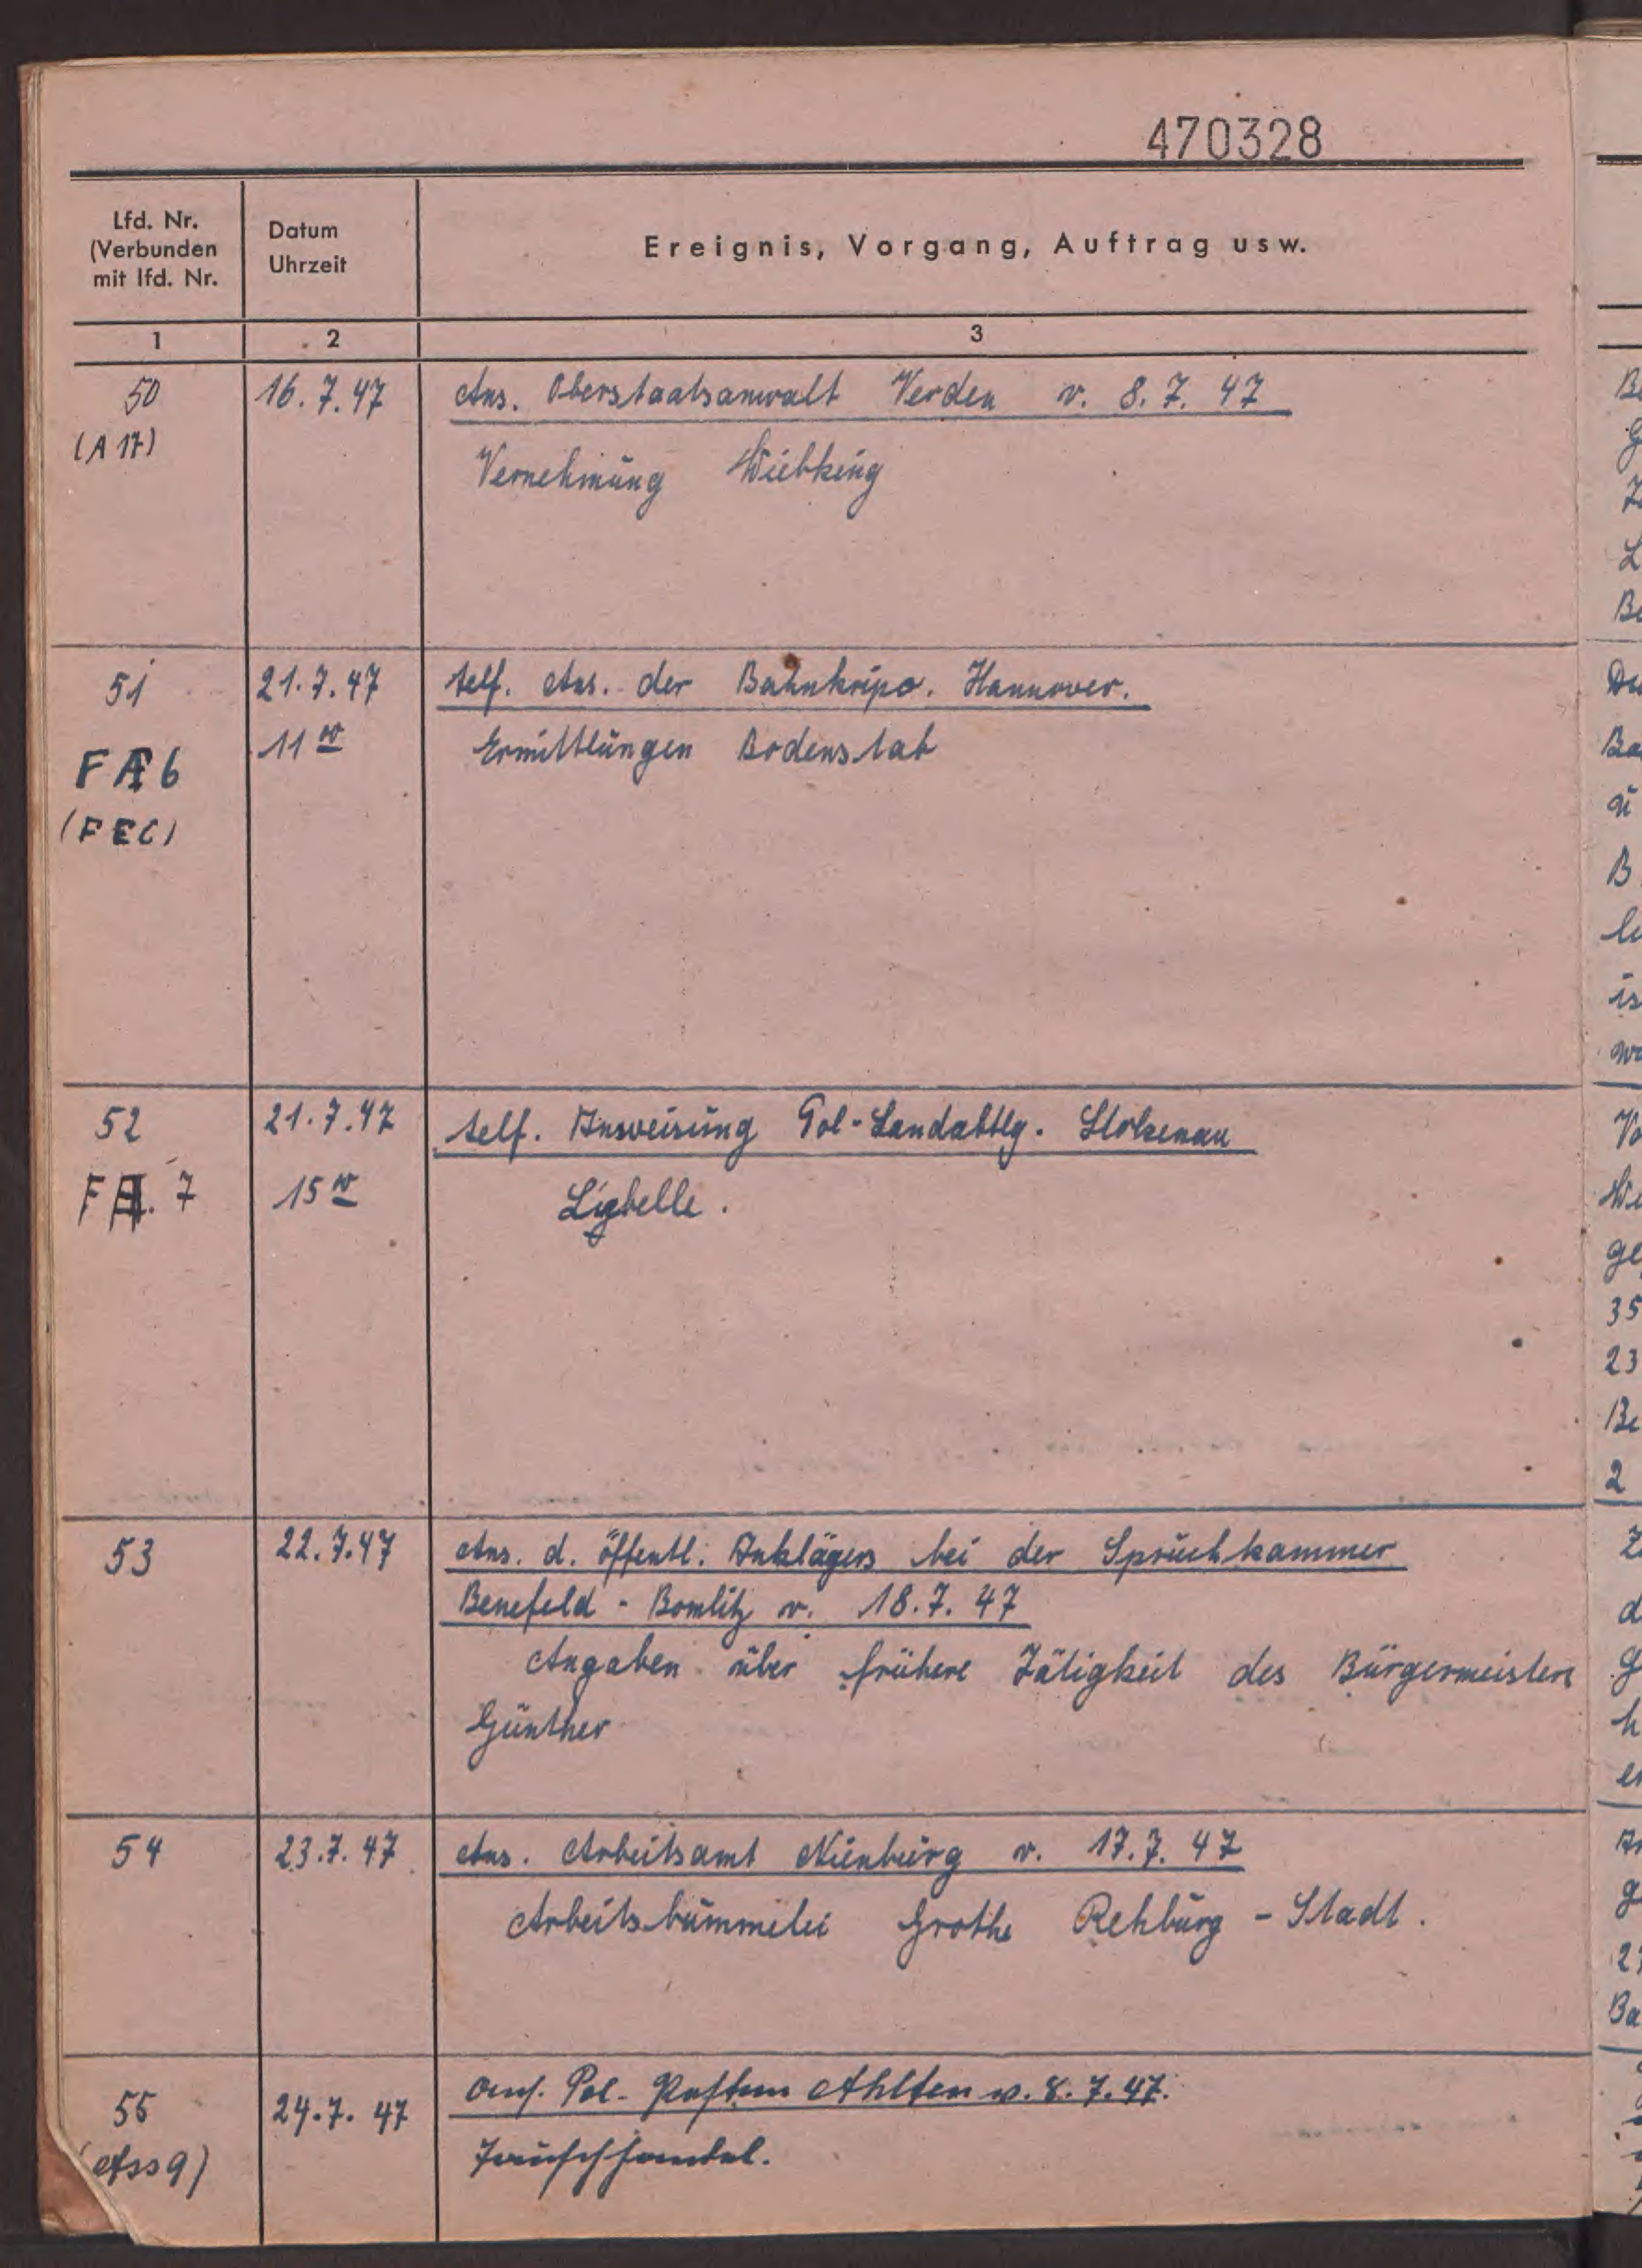 470328
Lfd. Nr.
(Verbunden
mit lfd. Nr.
Datum
Uhrzeit
Ereignis, Vorgang, Auftrag usw.
1 2 3
50 16.7.47 Ans. Oberstaatsanwalt Verden v. 8.7.47
(A 17) Vernehmung Wiebking
51 21.7.47 telf. Ans. der Bahnkripo. Hannover.
11 00 Ermittlungen Bodenstab
FA 6
(FEC)
52 21.7.47 telf. Anweisung Pol-Landabtlg. Stolzenau
FA. 7 15 00 Libelle.
53 22.7.47 Ans. d. öffentl. Anklägers bei der Spruchkammer
Benefeld - Bomlitz v. 18.7.47
Angaben über frühere Tätigkeit des Bürgermeisters
Günther
54 23.7.47 Ans. Arbeitsamt Nienburg v. 17.7.47
Arbeitsbummelei Grothe Rehburg - Stadt.
55 24.7.47 Ans. Pol.- Posten Ahlten v. 8.7.47.
Tauschhandel.